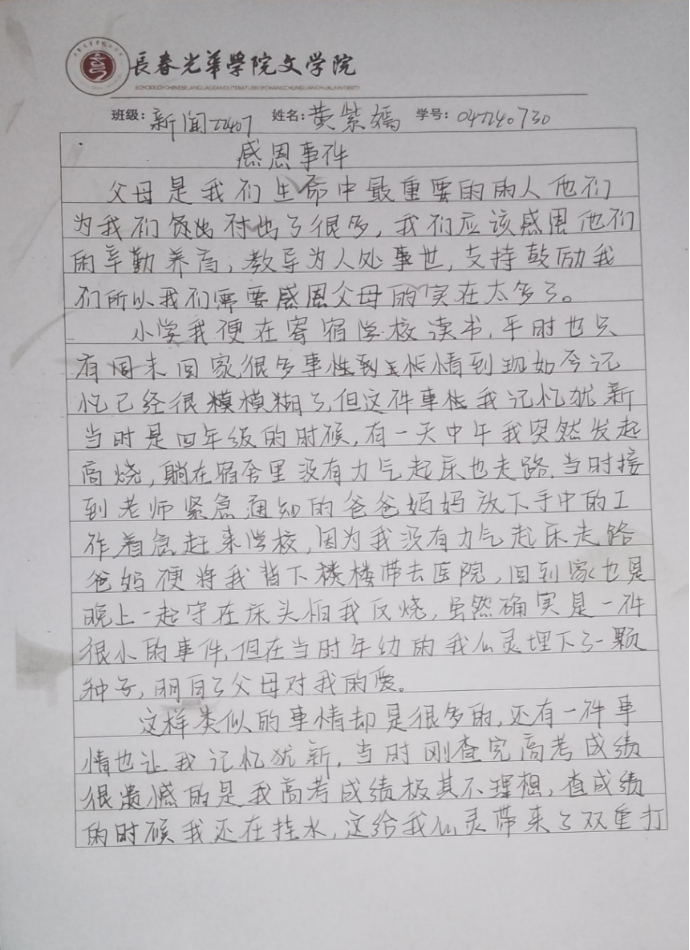 長春光華學院文学院
班级：新闻22407 姓名：黄紫嫣 学号：047240730
感恩事件
父母是我们生命中最重要的两人他们
为我们付出了很多，我们应该感恩他们
的辛勤养育，教导为人处事世，支持鼓励我
们所以我们需要感恩父母的实在太多了。
小学我便在寄宿学校读书，平时也只
有周末回家很多事情到现如今记
忆已经很模模糊了，但这件事情我记忆犹新
当时是四年级的时候，有一天中午我突然发起
高烧，躺在宿舍里没有力气起床也走路，当时接
到老师紧急通知的爸爸妈妈放下手中的工
作着急赶来学校，因为我没有力气起床走路
爸妈便将我背下楼楼带去医院，回到家也是
晚上一起守在床头怕我反烧，虽然确实是一件
很小的事件，但在当时年幼的我心灵埋下了一颗
种子，明白了父母对我的爱。
这样类似的事情却是很多的，还有一件事
情也让我记忆犹新，当时刚查完高考成绩
很遗憾的是我高考成绩极其不理想，查成绩
的时候我还在挂水，这给我心灵带来了双重打